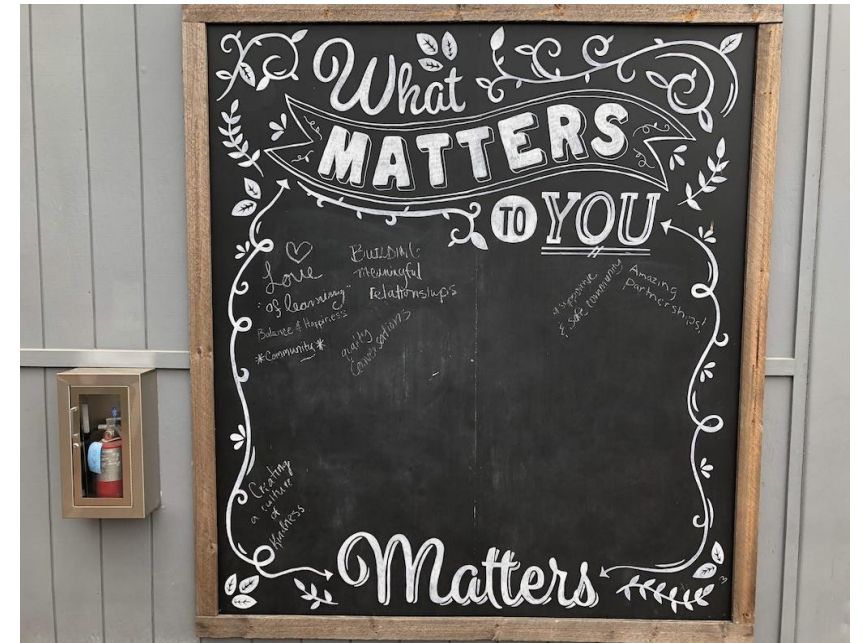 What
MATTERS
TO YOU
Love
"of learning"
Balance & Happiness
*Community*
BUILDING
meaningful
relationships
quality
conversations
a supportive
& safe community
Amazing
Partnerships!
Creating
a culture
of
Kindness
Matters